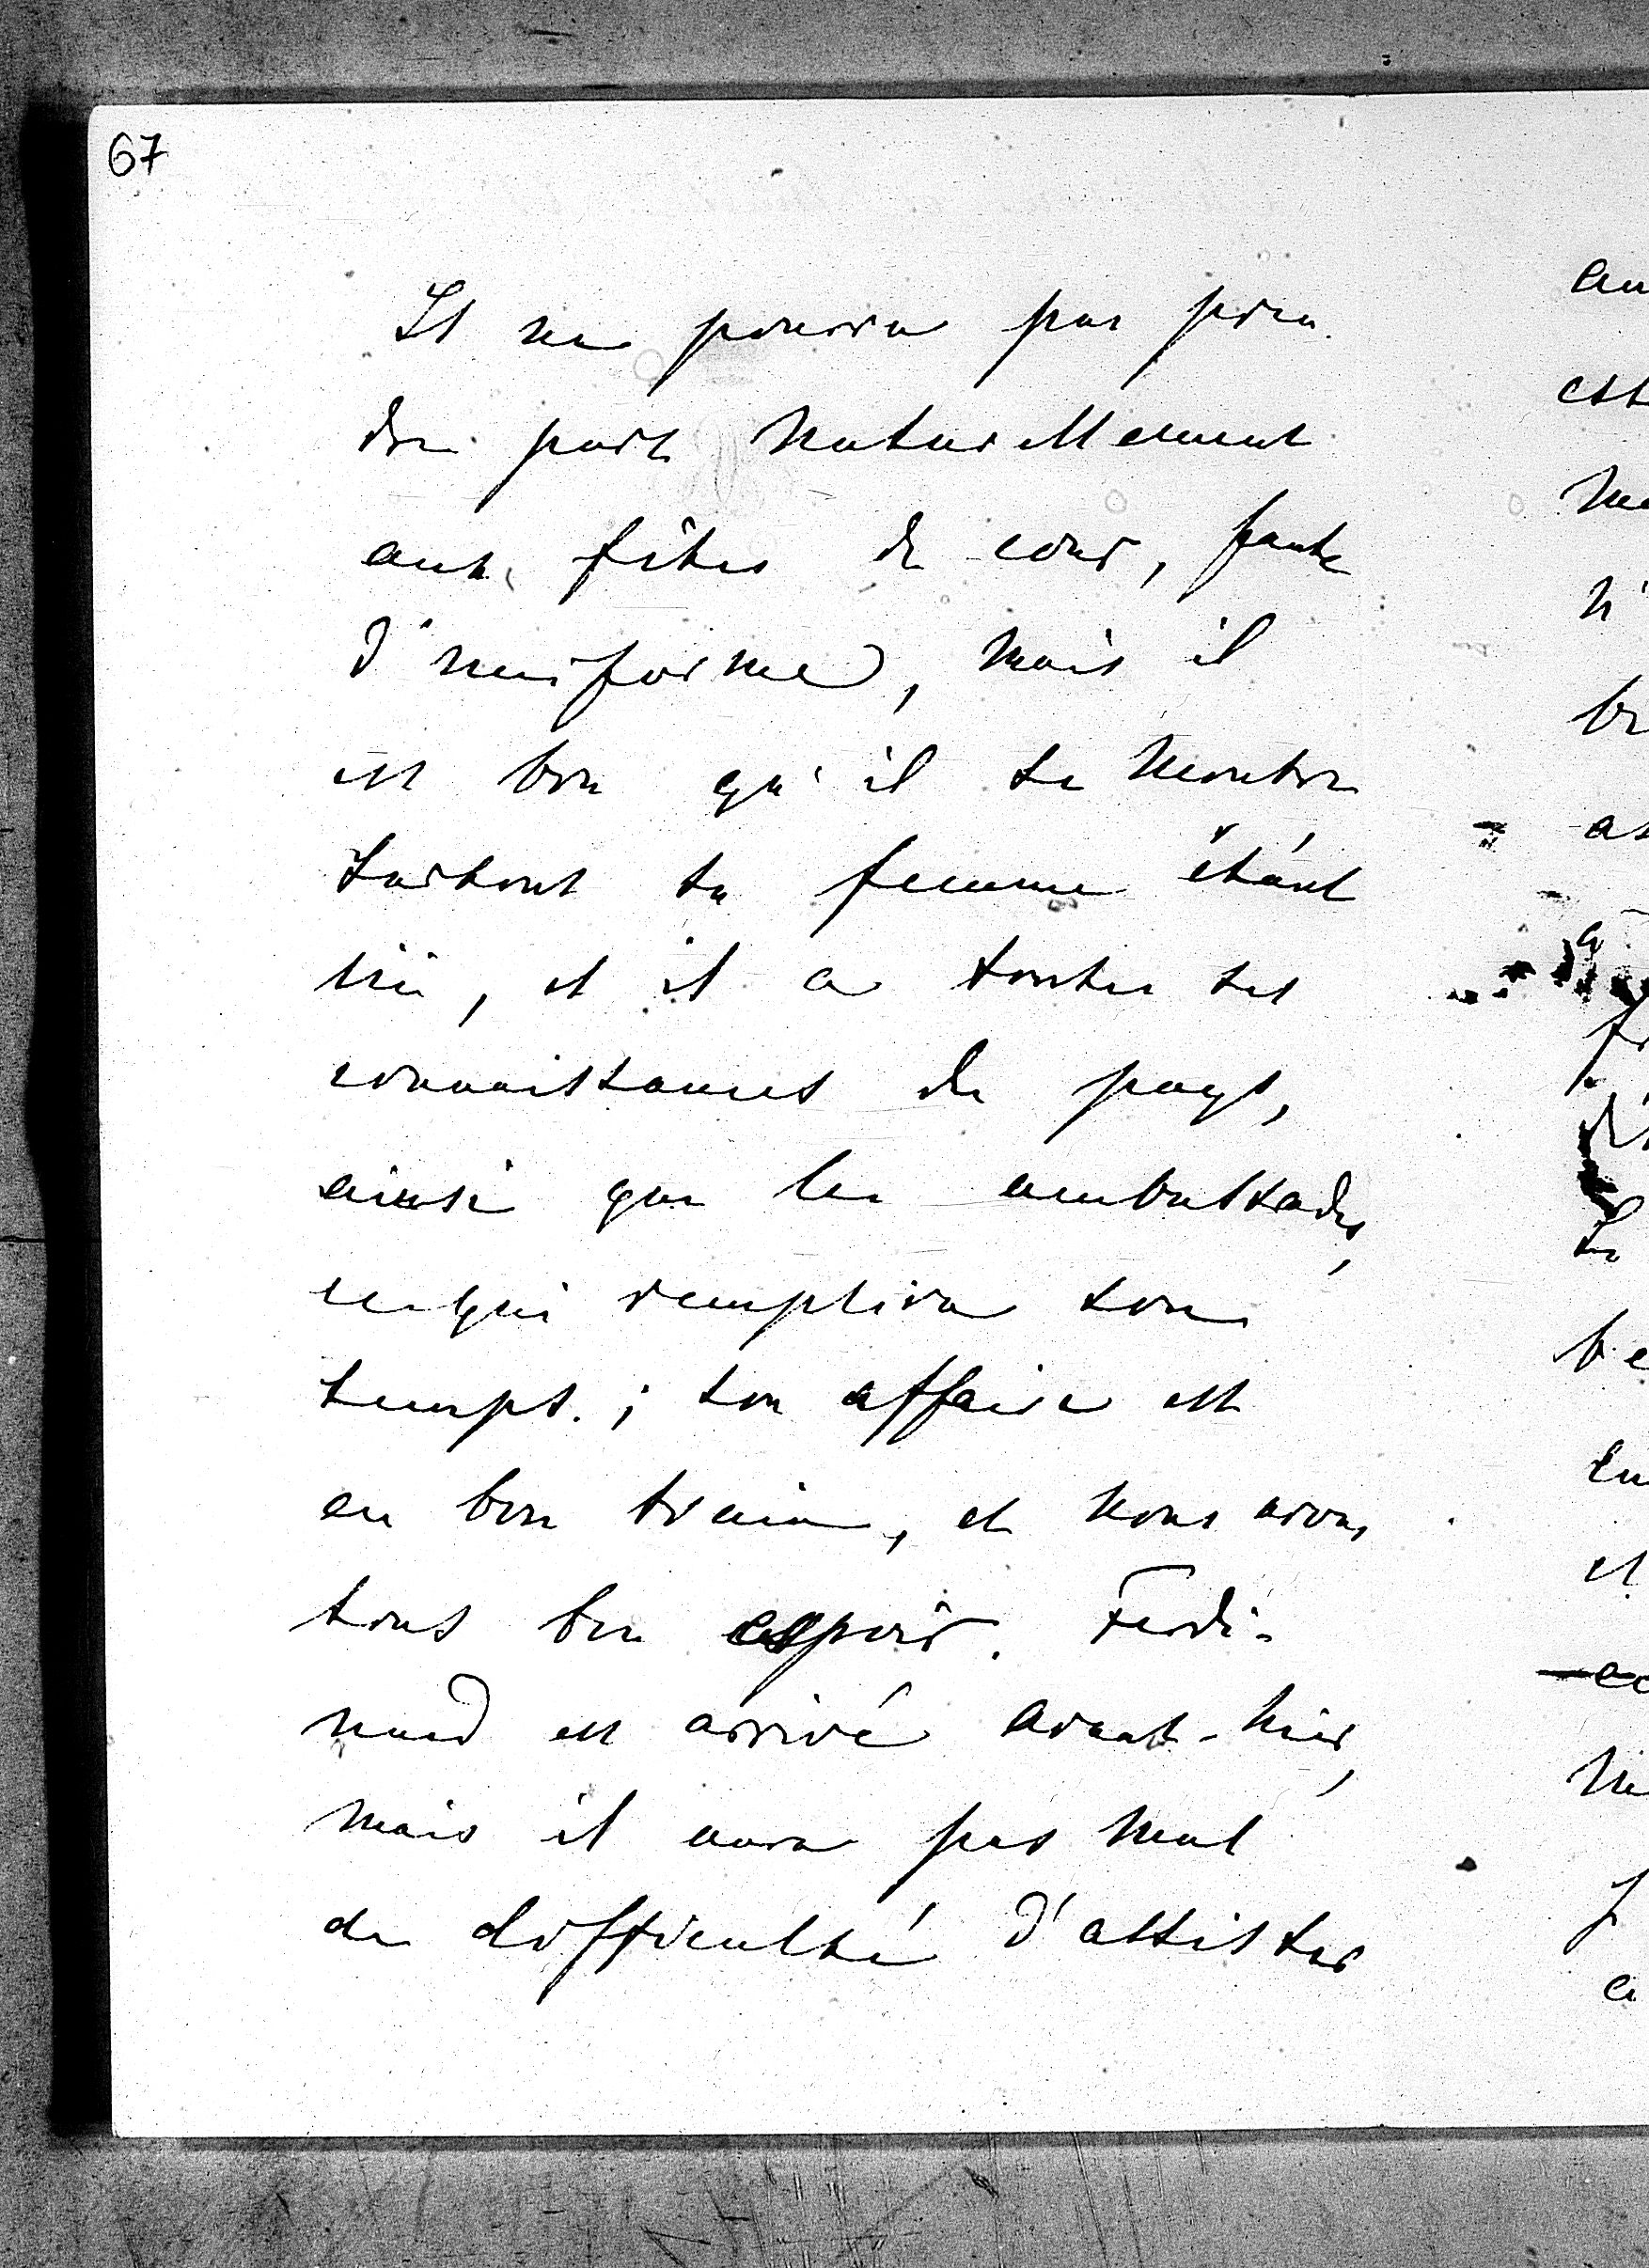 67
Il ne pourra pas pren
dre part naturellement
aux fêtes de cour, faute
d'uniforme, mais il
est bon qu'il se montre
surtout sa femme étant
ici, et il a toutes ses
connaissances du pays,
ainsi que les ambassades,
ce qui remplira son
temps. ; son affaire est
en bon train, et nous avons
tous bon espoir. Ferdi-
nand est arrivé avant-hier,
mais il aura pas mal
de difficulté d'assister